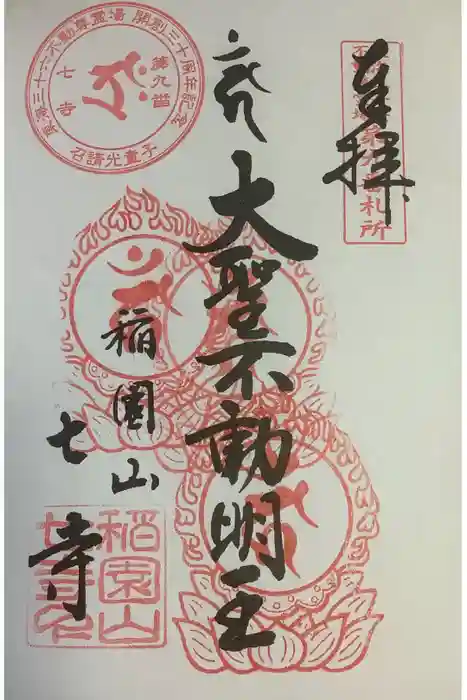 奉拝
大聖不動明王
稲園山
七寺
東海三十六不動尊霊場 開創三十周年記念
第九番
七寺
召請光童子
札所
稲園山
七寺印